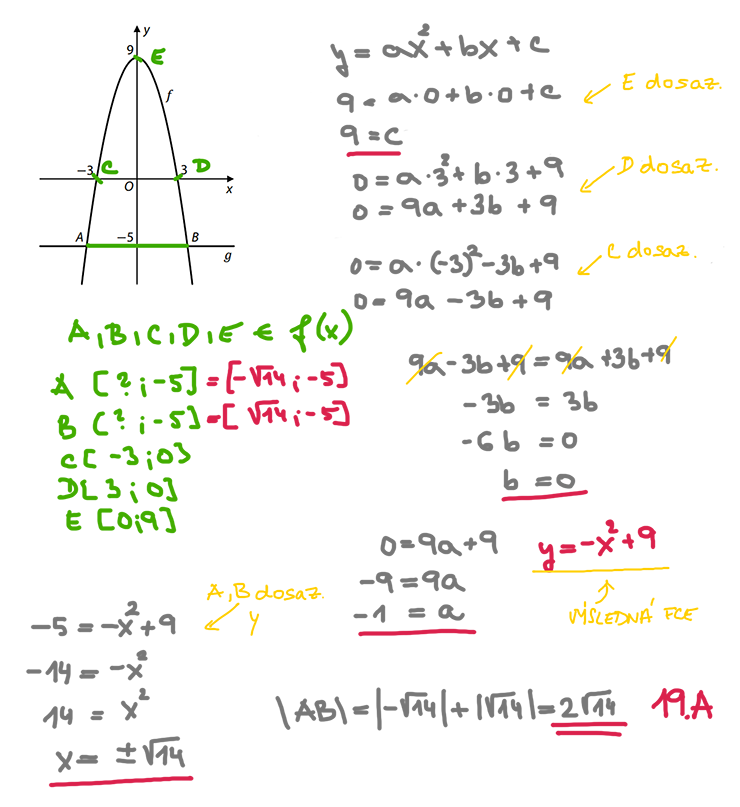 y
9 E
f
-3 C 3 D
O x
A -5 B
g
y = ax² + bx + c
9 = a·0 + b·0 + c E dosaz.
9 = c
0 = a·3² + b·3 + 9 D dosaz.
0 = 9a + 3b + 9
0 = a·(-3)² - 3b + 9 C dosaz.
0 = 9a - 3b + 9
A, B, C, D, E ∈ f(x)
A [? ; -5] = [-√14 ; -5]
B [? ; -5] = [√14 ; -5]
C[ -3 ; 0]
D[ 3 ; 0]
E [0;9]
9a - 3b + 9 = 9a + 3b + 9
-3b = 3b
-6b = 0
b = 0
0 = 9a + 9
-9 = 9a
-1 = a
y = -x² + 9
VÝSLEDNÁ FCE
A, B dosaz.
y
-5 = -x² + 9
-14 = -x²
14 = x²
x = ±√14
|AB| = |-√14| + |√14| = 2√14 19.A